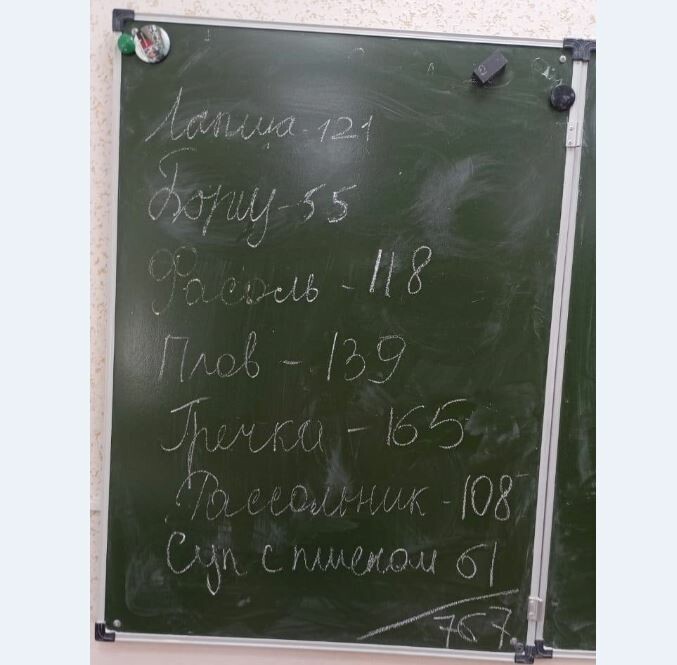 Лапша - 121
Борщ - 55
Фасоль - 118
Плов - 139
Гречка - 165
Рассольник - 108
Суп с пшеном 61
767